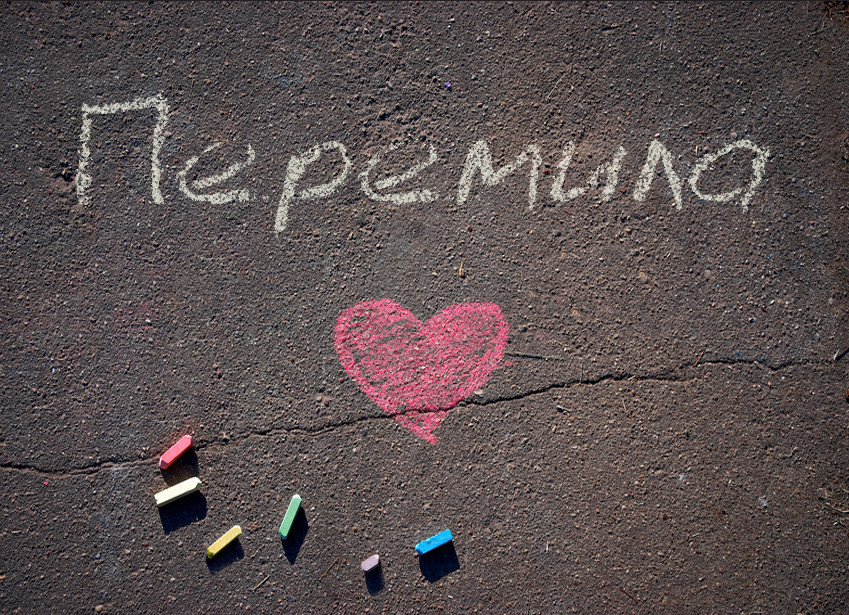 Перемило